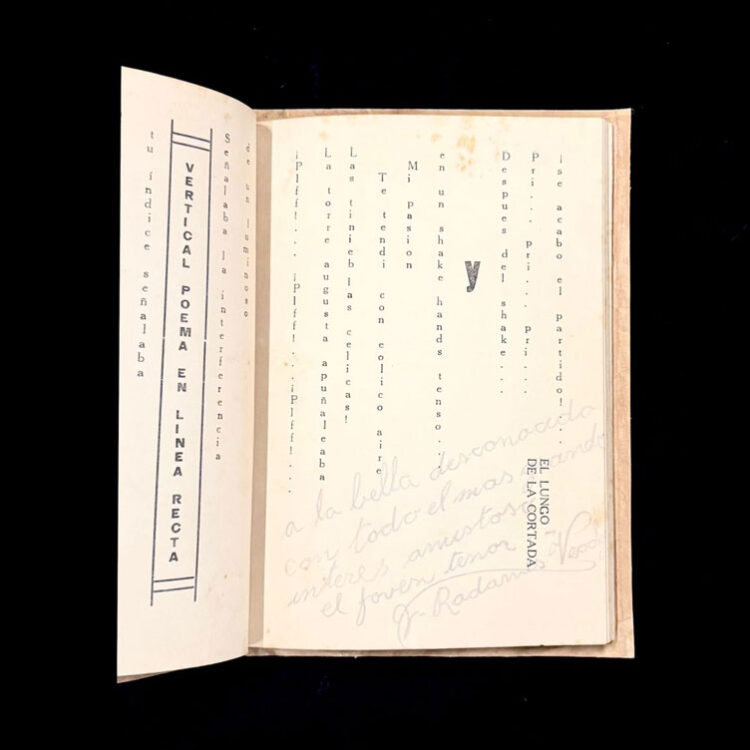 tu índice señalaba
VERTICAL POEMA EN LINEA RECTA
Señalaba la interferencia
de un luminoso
¡Plff!... ¡Plff!...¡Plff!...
La torre augusta apuñaleaba
Las tinieblas celicas!
Te tendi con eolico aire
Mi pasion
en un shake hands tenso...
y
Despues del shake...
Pri... pri... pri...
¡se acabo el partido!...
EL LUNGO
DE LA CORTADA
a la bella desconocida
con todo el mas grande
interes amistoso
el joven tenor